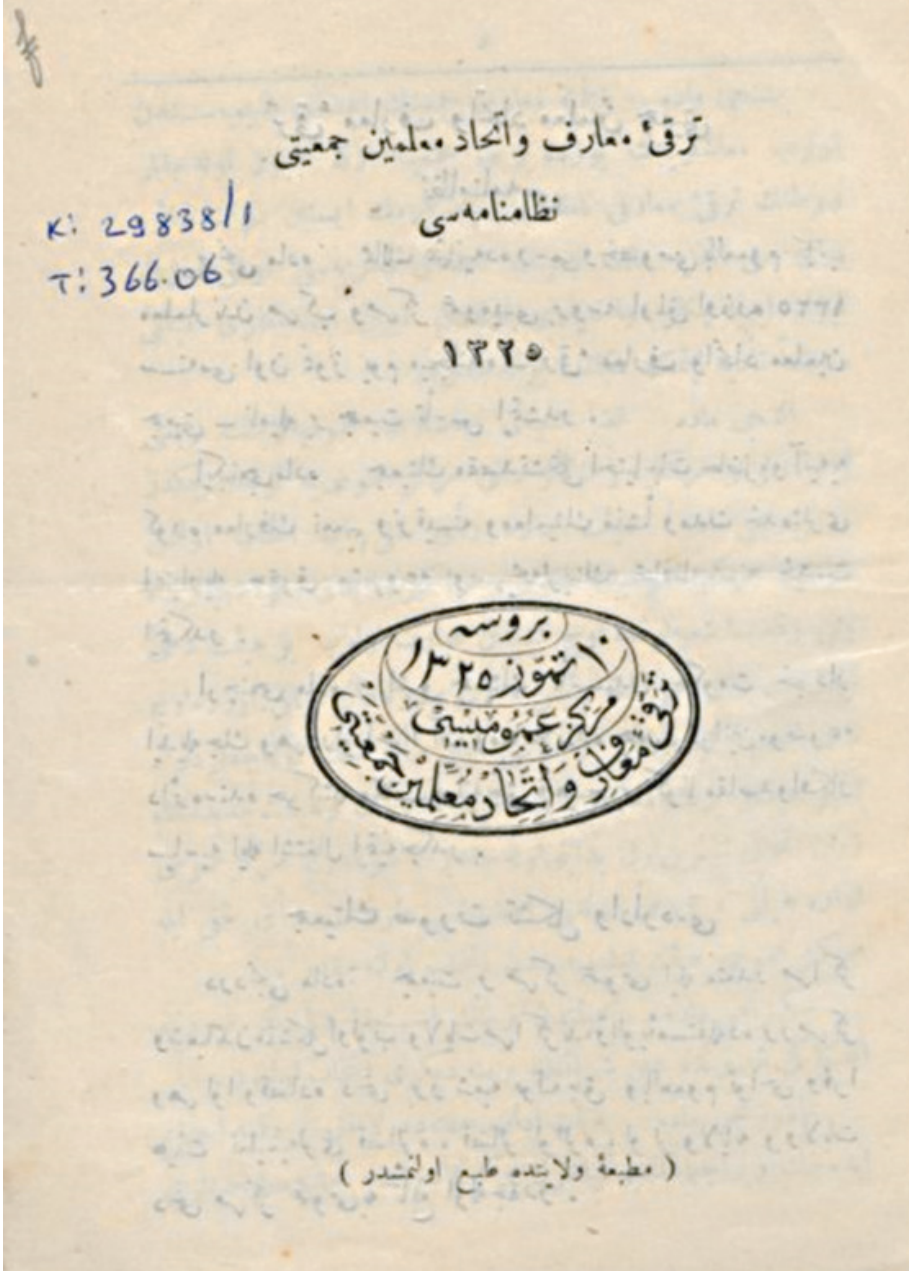 ترقئ معارف و اتحاد معلمین جمعیتی
نظامنامه‌سی
K: 29838/1
T: 366.06
١٣٢٥
بروسه
١٠ تموز ١٣٢٥
مركز عمومیسی
ترقئ معارف و اتحاد معلمین جمعیتی
( مطبعهٔ ولایتده طبع اولنمشدر )